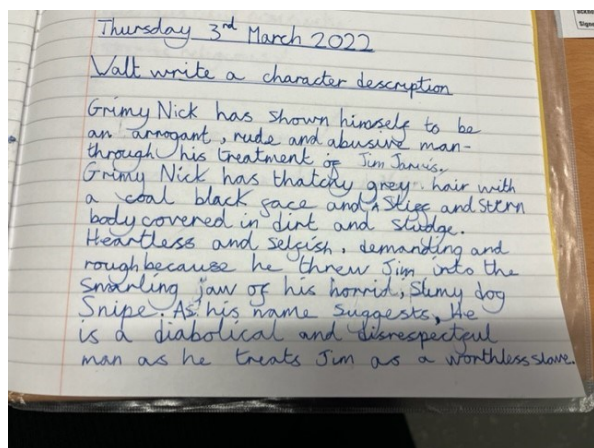 Thursday 3rd March 2022
Walt write a character description
Grimy Nick has shown himself to be
an arrogant, rude and abusive man-
through his treatment of Jim Jarvis.
Grimy Nick has thatchy grey hair with
a coal black face and a stiff and stern
body covered in dirt and sludge.
Heartless and selfish, demanding and
rough because he threw Jim into the
snarling jaw of his horrid, slimy dog
Snipe. As his name suggests, he
is a diabolical and disrespectful
man as he treats Jim as a worthless slave.